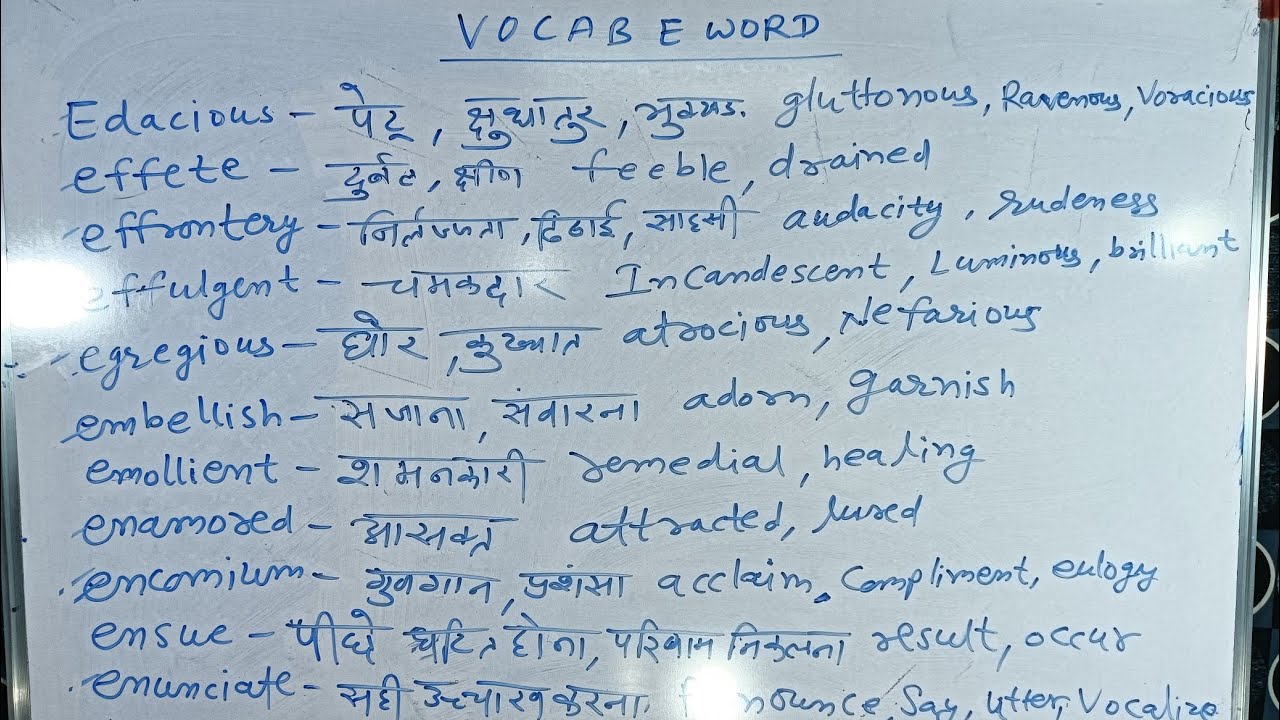 VOCAB E WORD
Edacious - पेटू, क्षुधातुर, भुक्खड. gluttonous, Ravenous, Voracious
effete - दुर्बल, क्षीण feeble, drained
effrontery - निर्लज्जता, ढिठाई, साहसी audacity, rudeness
effulgent - चमकदार Incandescent, Luminous, brilliant
egregious - घोर, कुख्यात atrocious, Nefarious
embellish - सजाना, संवारना adorn, garnish
emollient - शमनकारी remedial, healing
enamored - आसक्त attracted, lured
encomium - गुणगान, प्रशंसा acclaim, Compliment, eulogy
ensue - पीछे घटित होना, परिणाम निकलना result, occur
enunciate - सही उच्चारण करना. Say, utter, Vocalize